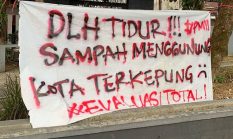 DLH TIDUR!!!
SAMPAH MENGGUNUNG
KOTA TERKEPUNG
EVALUASI TOTAL!